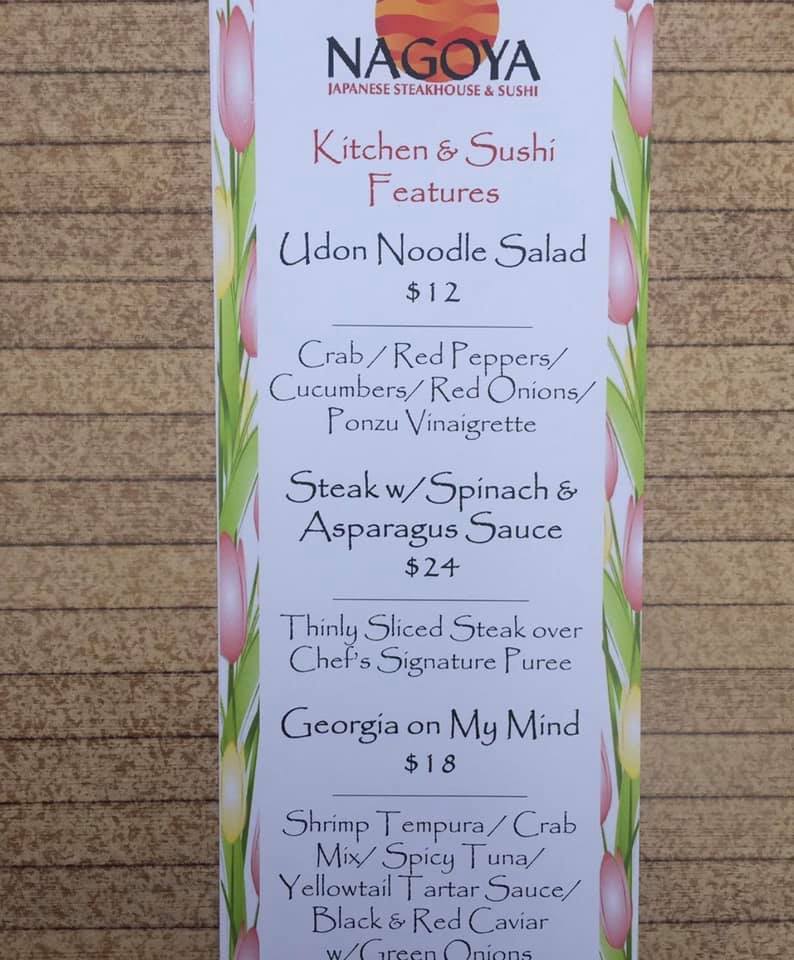 NAGOYA
JAPANESE STEAKHOUSE & SUSHI
Kitchen & Sushi
Features
Udon Noodle Salad
$12
Crab / Red Peppers/
Cucumbers/ Red Onions/
Ponzu Vinaigrette
Steak w/ Spinach &
Asparagus Sauce
$24
Thinly Sliced Steak over
Chef's Signature Puree
Georgia on My Mind
$18
Shrimp Tempura / Crab
Mix/ Spicy Tuna/
Yellowtail Tartar Sauce/
Black & Red Caviar
w/Green Onions